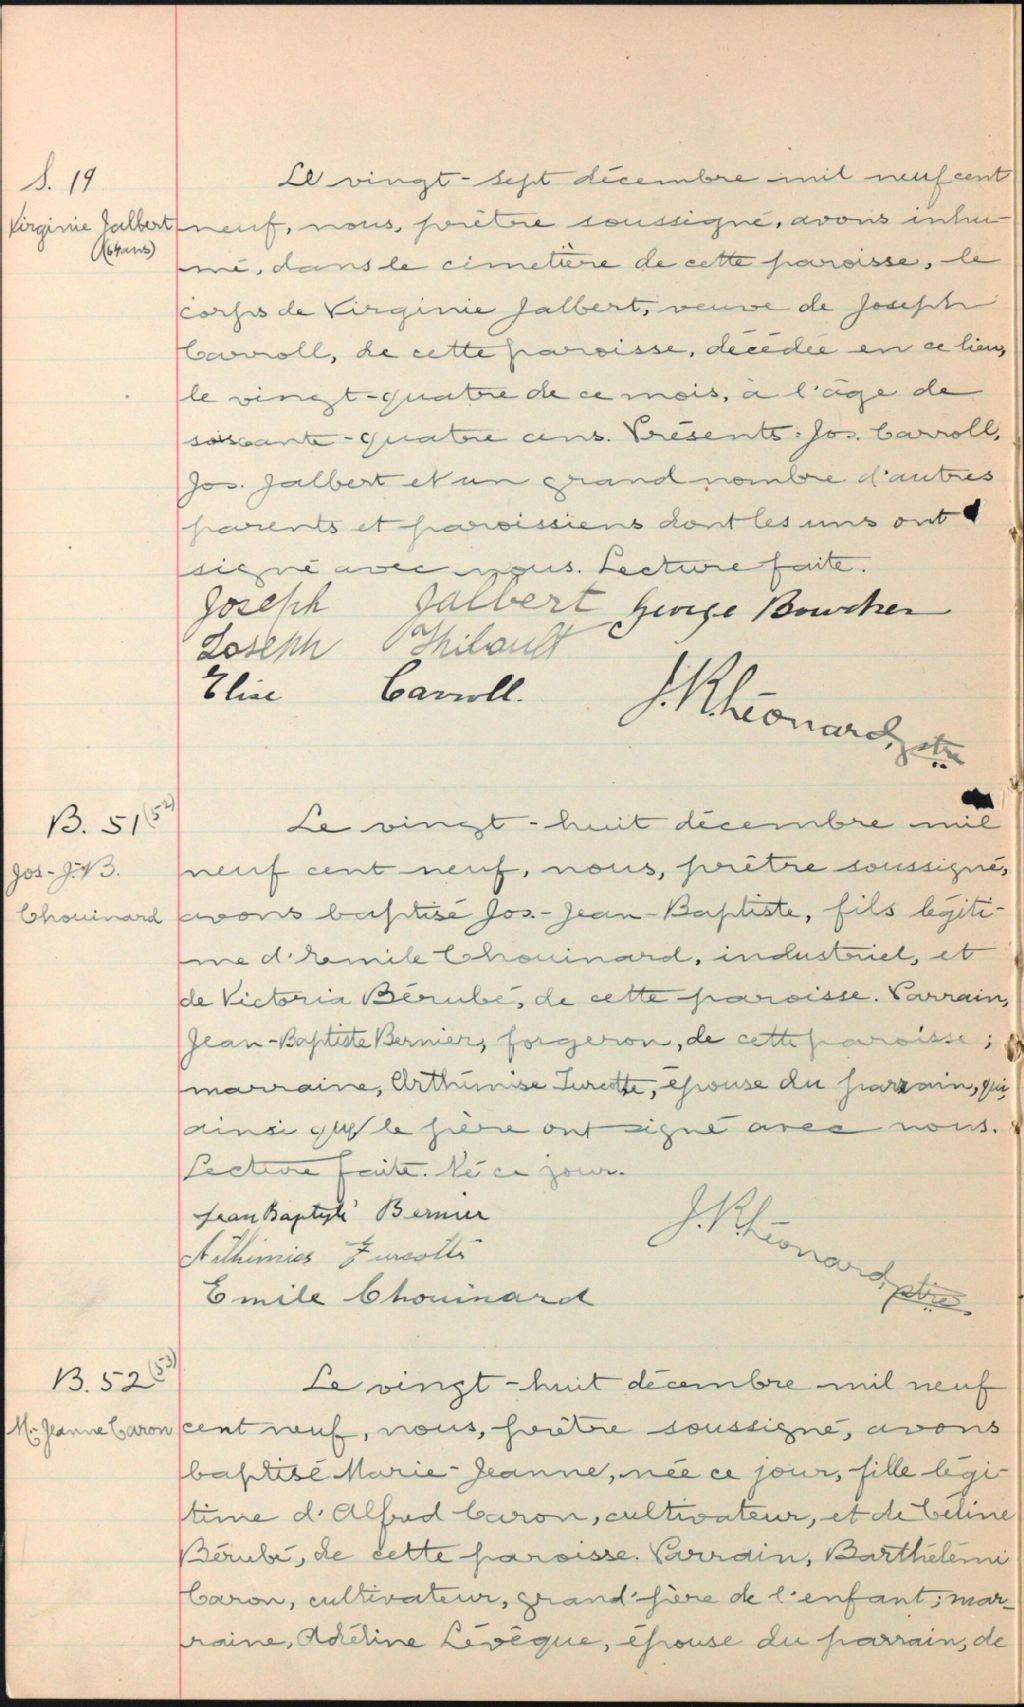 S. 19
Virginie Jalbert
(64 ans)
Le vingt-sept décembre mil neuf cent
neuf, nous, prêtre soussigné, avons inhu-
mé, dans le cimetière de cette paroisse, le
corps de Virginie Jalbert, veuve de Joseph
Carroll, de cette paroisse, décédée en ce lieu,
le vingt-quatre de ce mois, à l'âge de
soixante-quatre ans. Présents: Jos. Carroll,
Jos. Jalbert et un grand nombre d'autres
parents et paroissiens dont les uns ont
signé avec nous. Lecture faite.
Joseph Jalbert George Boucher
Joseph Thibault
Elise Carroll.
J. R. Léonard, ptre
B. 51 (52)
Jos-J.-B.
Chouinard
Le vingt-huit décembre mil
neuf cent neuf, nous, prêtre soussigné,
avons baptisé Jos.-Jean-Baptiste, fils légiti-
me d'Emile Chouinard, industriel, et
de Victoria Bérubé, de cette paroisse. Parrain,
Jean-Baptiste Bernier, forgeron, de cette paroisse;
marraine, Arthémise Turcotte, épouse du parrain, qui
ainsi que le père ont signé avec nous.
Lecture faite. Né ce jour.
Jean Baptiste Bernier
Turcotte
Emile Chouinard
J. R. Léonard, ptre
B. 52 (53)
M.-Jeanne Caron
Le vingt-huit décembre mil neuf
cent neuf, nous, prêtre soussigné, avons
baptisé Marie-Jeanne, née ce jour, fille légi-
time d'Alfred Caron, cultivateur, et de Céline
Bérubé, de cette paroisse. Parrain, Barthélémi
Caron, cultivateur, grand'père de l'enfant; mar-
raine, Adéline Lévêque, épouse du parrain, de